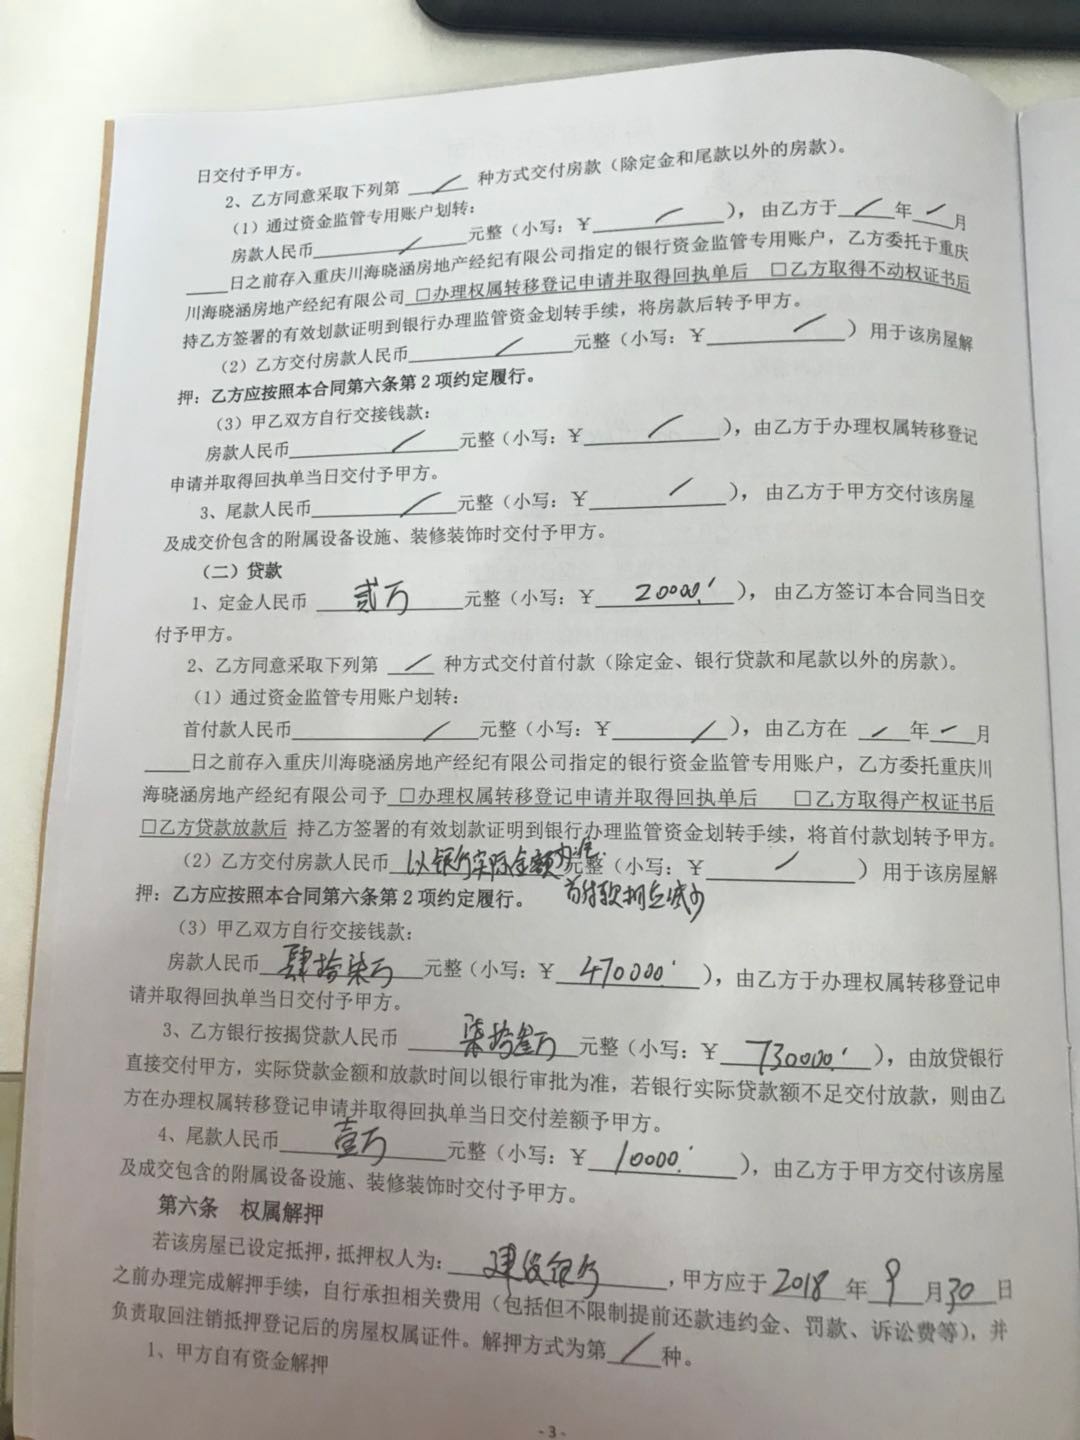 日交付予甲方。
2、乙方同意采取下列第 / 种方式交付房款（除定金和尾款以外的房款）。
（1）通过资金监管专用账户划转：
房款人民币 / 元整（小写：￥ / ），由乙方于 / 年 / 月
日之前存入重庆川海晓涵房地产经纪有限公司指定的银行资金监管专用账户，乙方委托于重庆
川海晓涵房地产经纪有限公司 □办理权属转移登记申请并取得回执单后 □乙方取得不动权证书后
持乙方签署的有效划款证明到银行办理监管资金划转手续，将房款后转予甲方。
（2）乙方交付房款人民币 / 元整（小写：￥ / ）用于该房屋解
押：乙方应按照本合同第六条第2项约定履行。
（3）甲乙双方自行交接钱款：
房款人民币 / 元整（小写：￥ / ），由乙方于办理权属转移登记
申请并取得回执单当日交付予甲方。
3、尾款人民币 / 元整（小写：￥ / ），由乙方于甲方交付该房屋
及成交价包含的附属设备设施、装修装饰时交付予甲方。
（二）贷款
1、定金人民币 贰万 元整（小写：￥ 20000. ），由乙方签订本合同当日交
付予甲方。
2、乙方同意采取下列第 / 种方式交付首付款（除定金、银行贷款和尾款以外的房款）。
（1）通过资金监管专用账户划转：
首付款人民币 / 元整（小写：￥ / ），由乙方在 / 年 / 月
日之前存入重庆川海晓涵房地产经纪有限公司指定的银行资金监管专用账户，乙方委托重庆川
海晓涵房地产经纪有限公司予 □办理权属转移登记申请并取得回执单后 □乙方取得产权证书后
□乙方贷款放款后 持乙方签署的有效划款证明到银行办理监管资金划转手续，将首付款划转予甲方。
（2）乙方交付房款人民币 以银行实际金额为准. 元整（小写：￥ / ）用于该房屋解
押：乙方应按照本合同第六条第2项约定履行。 首付款相应减少
（3）甲乙双方自行交接钱款：
房款人民币 肆拾柒万 元整（小写：￥ 470000. ），由乙方于办理权属转移登记申
请并取得回执单当日交付予甲方。
3、乙方银行按揭贷款人民币 柒拾叁万 元整（小写：￥ 730000. ），由放贷银行
直接交付甲方，实际贷款金额和放款时间以银行审批为准，若银行实际贷款额不足交付放款，则由乙
方在办理权属转移登记申请并取得回执单当日交付差额予甲方。
4、尾款人民币 壹万 元整（小写：￥ 10000. ），由乙方于甲方交付该房屋
及成交包含的附属设备设施、装修装饰时交付予甲方。
第六条 权属解押
若该房屋已设定抵押，抵押权人为： 建设银行 ，甲方应于 2018 年 9 月 30 日
之前办理完成解押手续，自行承担相关费用（包括但不限制提前还款违约金、罚款、诉讼费等），并
负责取回注销抵押登记后的房屋权属证件。解押方式为第 / 种。
1、甲方自有资金解押
- 3 -